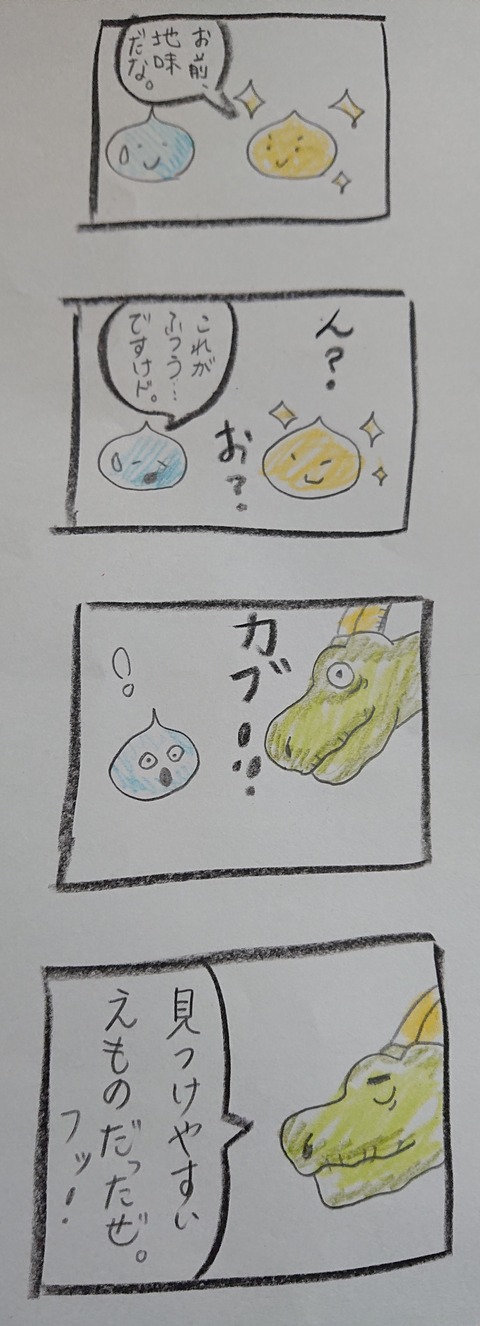 お前、
地味
だな。
これが
ふつう…
ですけド。
ん?
お?
カブ!!!
!?
見つけやすい
えものだったぜ。
フッ!